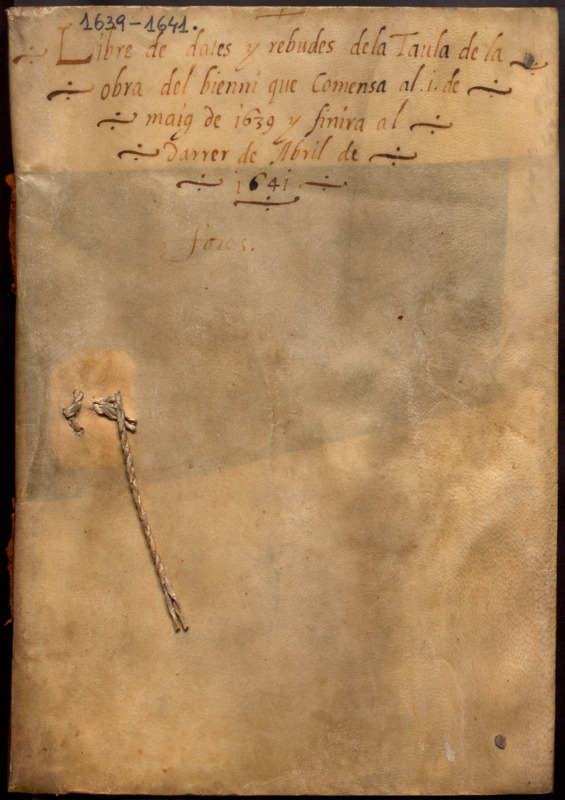 1639-1641.
Libre de dates y rebudes dela Taula de la
obra del bienni que Comensa al .1. de
maig de 1639 y finira al
Darrer de Abril de
1641